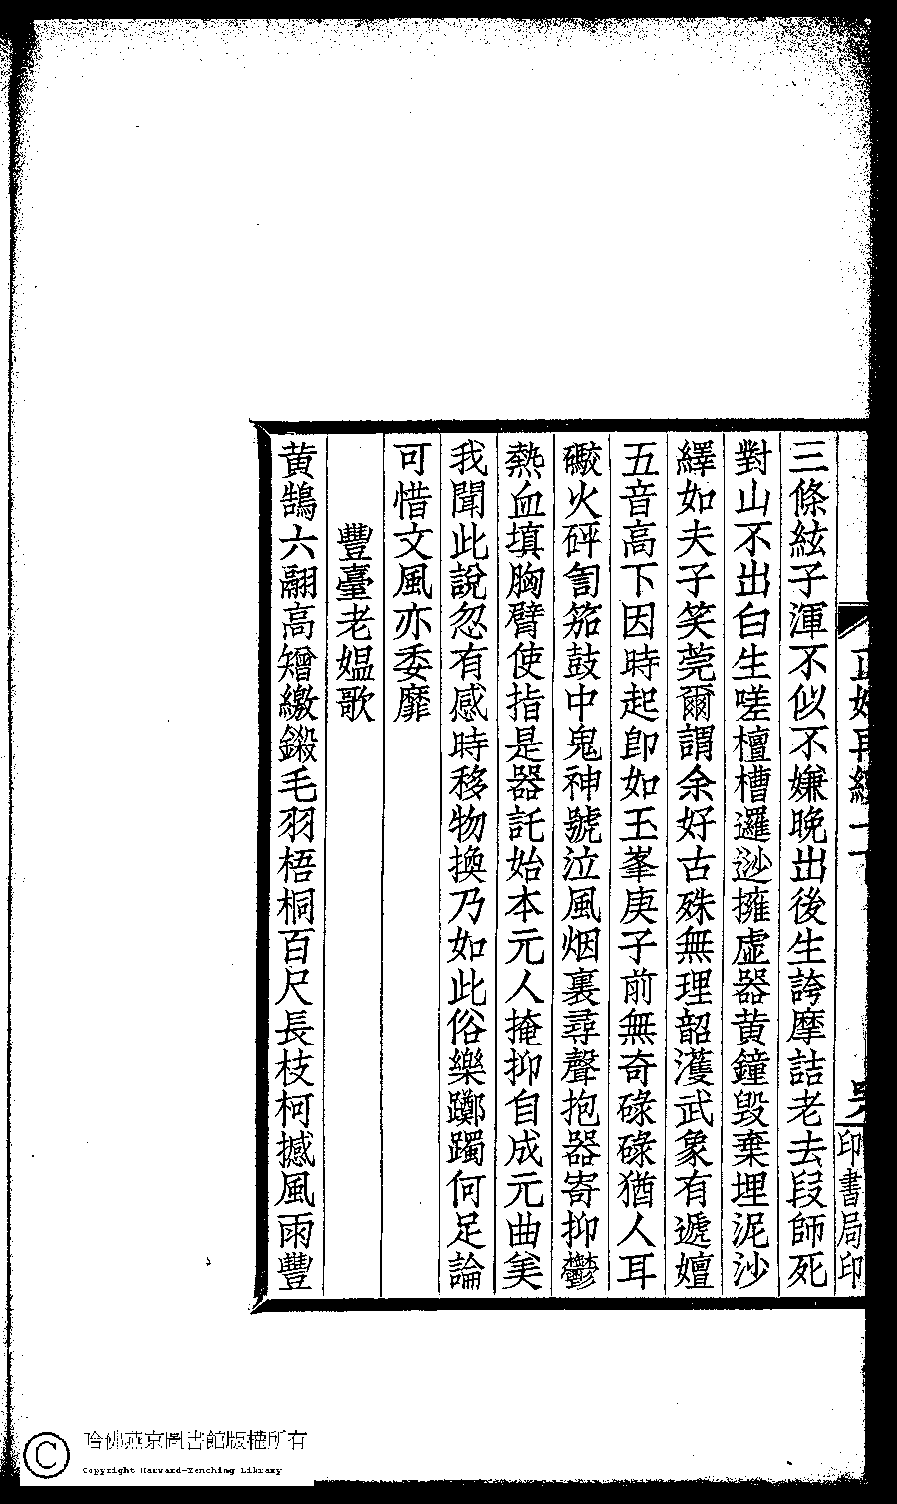 三條絃子渾不似不嫌晚出後生誇摩詰老去段師死
對山不出白生嗟檀槽邏逤擁虛器黄鐘毀棄埋泥沙
繹如夫子笑莞爾謂余好古殊無理韶濩武象有遞嬗
五音高下因時起卽如玉峯庚子前無奇碌碌猶人耳
火砰訇笳鼓中鬼神號泣風烟裏尋聲抱器寄抑鬱
熱血填胸臂使指是器託始本元人掩抑自成元曲美
我聞此說忽有感時移物換乃如此俗樂躑躅何足論
可惜文風亦委靡
豐臺老媼歌
黄鵠六翮高矰繳鎩毛羽梧桐百尺長枝柯撼風雨豐
印書局印
哈佛燕京圖書館版權所有
Copyright Harvard-Yenching Library